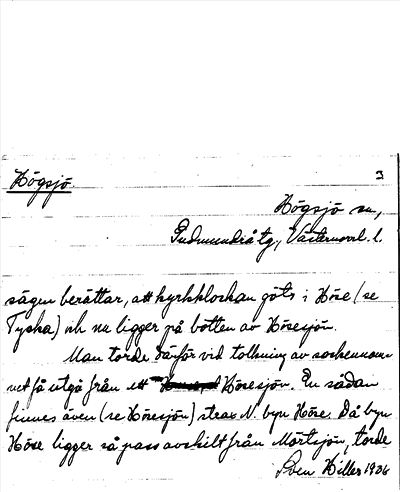 Högsjö. 3
Högsjö sn,
Gudmundrå tg., Västernorrl. l.
sägen berättar, att kyrkklockan göts i Höse (se
Tyska) och nu ligger på botten av Hösesjön.
Man torde därför vid tolkning av sockennam
net få utgå från ett Hösesjön. En sådan
finnes även (se Hösesjön) strax N. byn Höse. Då byn
Höse ligger så pass avskilt från Mörtsjön, torde
Sven Hiller 1936